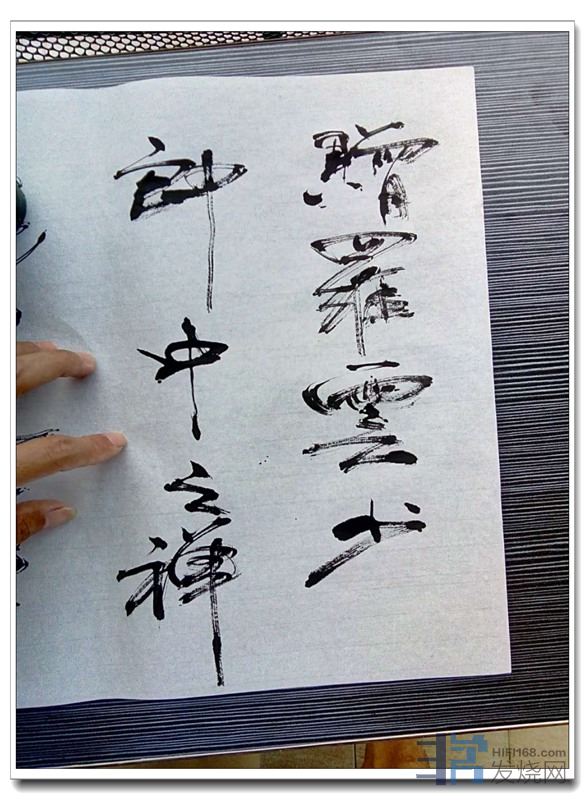 贈羅雲少
神中之禪
HIFI168.com
发烧网